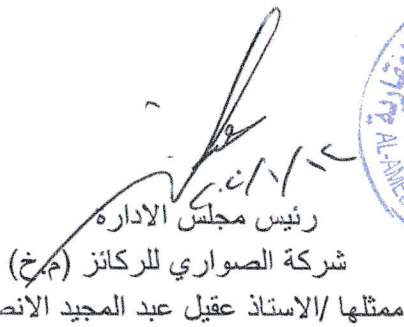 رئيس مجلس الادارة
شركة الصواري للركائز (م.خ)
ممثلها /الاستاذ عقيل عبد المجيد الانص